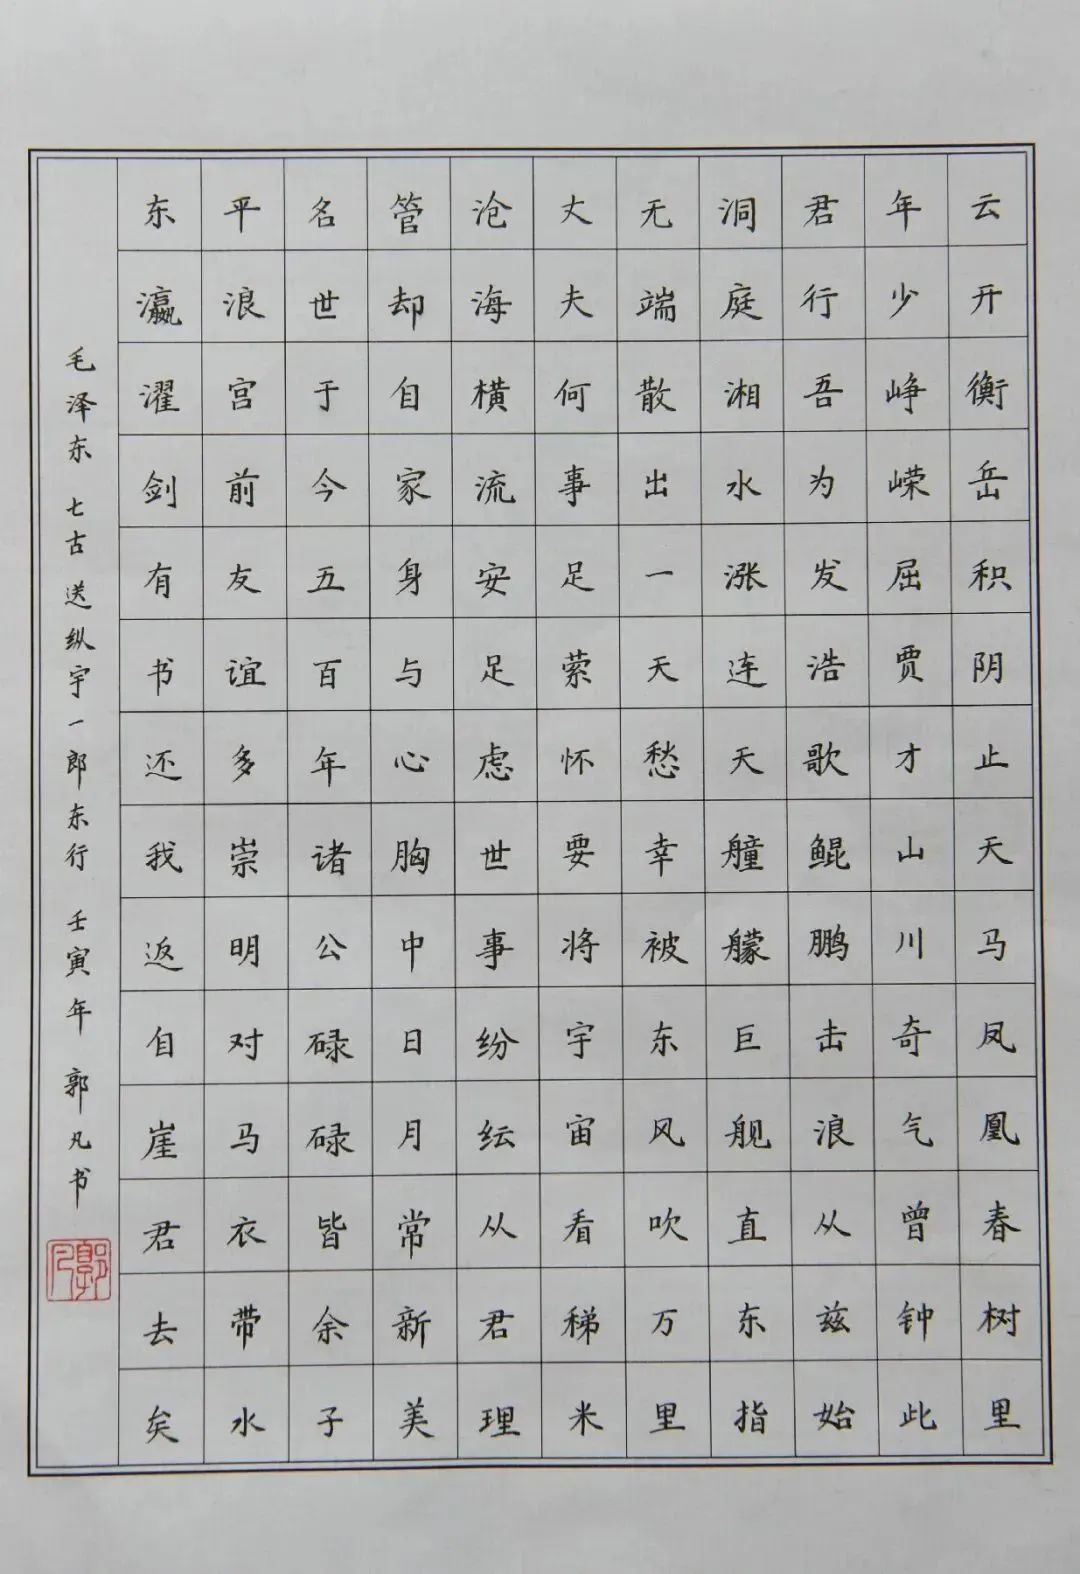 云开衡岳积阴止天马凤凰春树里
年少峥嵘屈贾才山川奇气曾钟此
君行吾为发浩歌鲲鹏击浪从兹始
洞庭湘水涨连天艟艨巨舰直东指
无端散出一天愁幸被东风吹万里
丈夫何事足萦怀要将宇宙看稊米
沧海横流安足虑世事纷纭从君理
管却自家身与心胸中日月常新美
名世于今五百年诸公碌碌皆余子
平浪宫前友谊多崇明对马衣带水
东瀛濯剑有书还我返自崖君去矣
毛泽东 七古 送纵宇一郎东行 壬寅年 郭凡书
郭凡